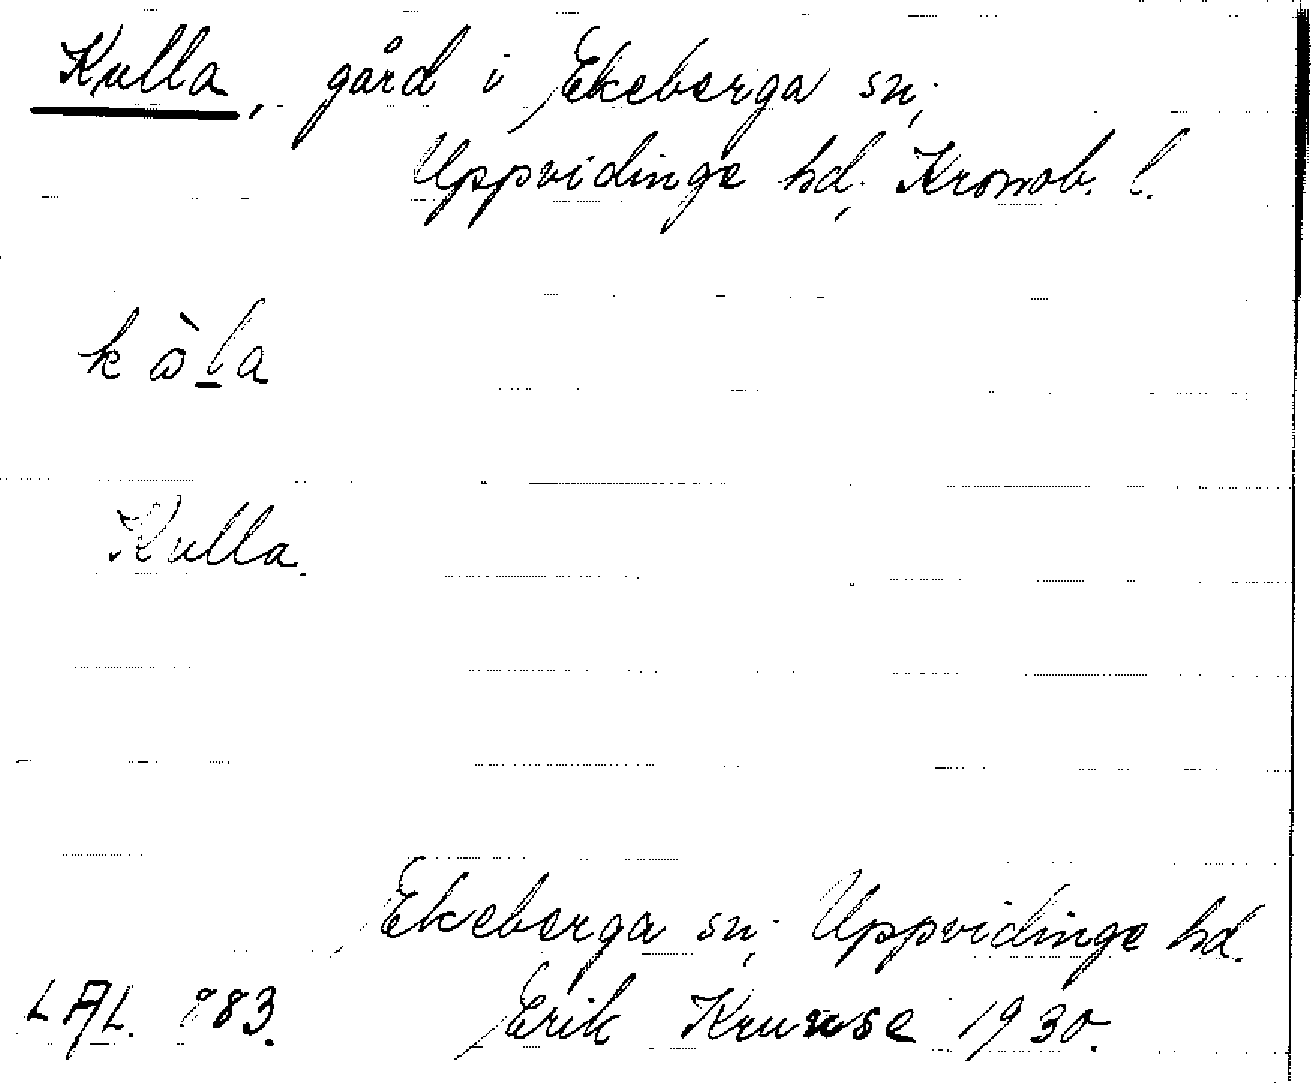 Kulla, gård i Ekeberga sn,
Uppvidinge hd, Kronob. l.
k ò l a
Kulla.
Ekeberga sn, Uppvidinge hd.
LAL. 883. Erik Kruuse 1930.